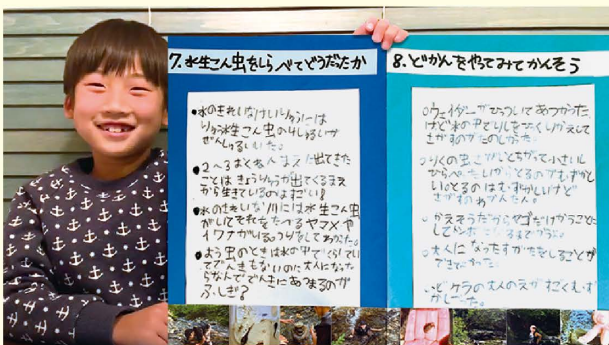 7.水生こん虫をしらべてどうだったか
●水のきれいなけいりゅうには
水生こん虫の4しゅるいが
ぜんしゅるいいた。
●2~3おくねんまえに出てきた
ことはきょうりゅうが出てくるまえ
から生きているのはすごい
●水のきれいな川には水生こん虫
がいてそれをたべるヤマメや
イワナがいる。つりをしてわかった。
●よう虫のときは水の中でくらしてい
てでんきもないのに大人になった
らなんででんきにあつまるのが
ふしぎ
8.どかんをやってみてかんそう
○ウェイダーがひっついてあつかった
けど水の中で石をひっくりかえして
さがすのがたのしかった。
○りくの虫とかたちがちがって小さいし
ひらべったいからとるのがむずかし
い。とるのはむずかしいけど
さがすのはかんたん。
してトンボになるまで
大人になったすがたをしることが
できてよかった。
ケラの大人のえがすごくむず
かしかった。